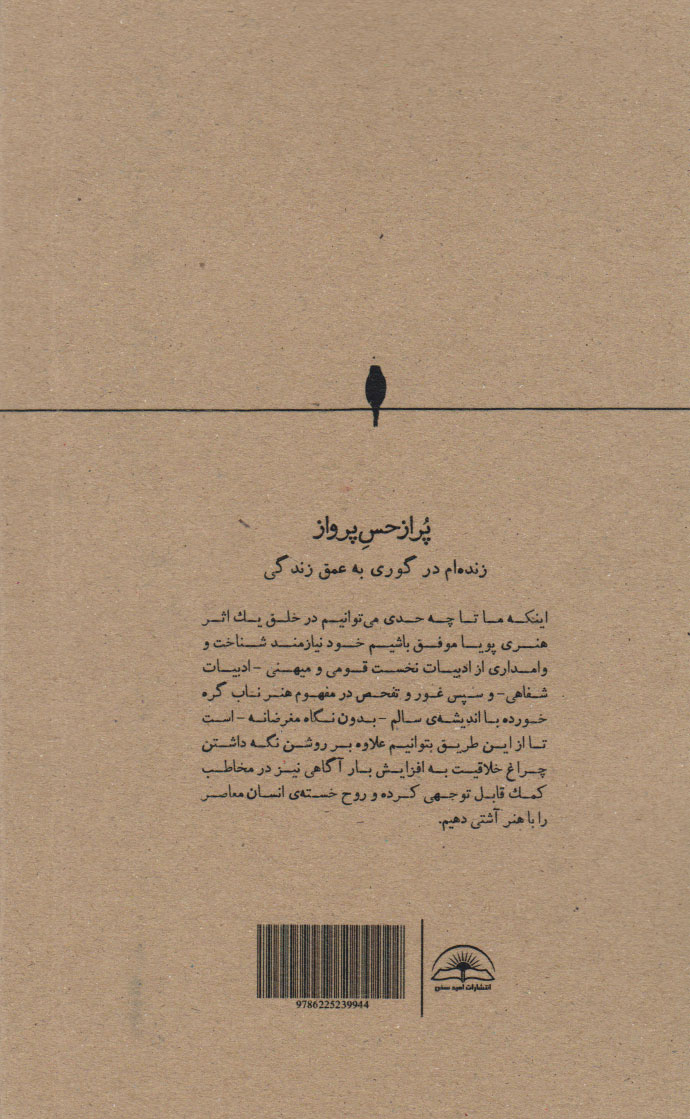 پُر از حسِ پرواز
زنده‌ام در گوری به عمق زندگی
اینکه ما تا چه حدی می‌توانیم در خلق یك اثر
هنری پویا موفق باشیم خود نیازمند شناخت و
وامداری از ادبیات نخست قومی و میهنی -ادبیات
شفاهی- و سپس غور و تفحص در مفهوم هنر ناب گره
خورده با اندیشه‌ی سالم -بدون نگاه مغرضانه- است
تا از این طریق بتوانیم علاوه بر روشن نگه داشتن
چراغ خلاقیت به افزایش بار آگاهی نیز در مخاطب
کمك قابل توجهی کرده و روح خسته‌ی انسان معاصر
را با هنر آشتی دهیم.
انتشارات امید سخن
9786225239944